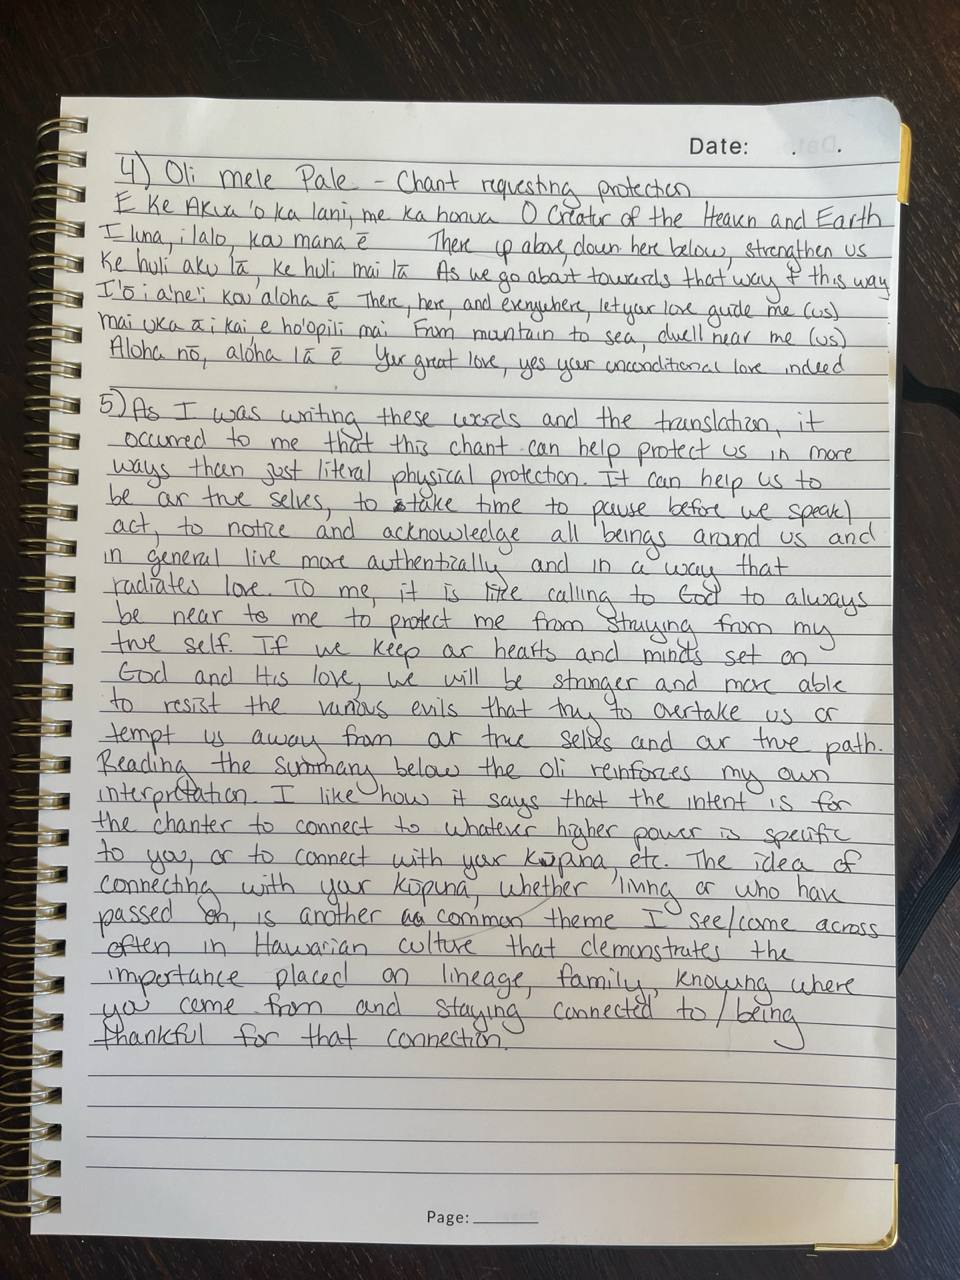 Date: . .
4) Oli mele Pale - Chant requesting protection
E Ke Akua 'o ka lani, me ka honua O Creator of the Heaven and Earth
I luna, i lalo, kou mana ē There up above, down here below, strengthen us
Ke huli aku lā, ke huli mai lā As we go about towards that way & this way
I'ō i a'ne'i kou aloha ē There, here, and everywhere, let your love guide me (us)
mai uka ā i kai e ho'opili mai From mountain to sea, dwell near me (us)
Aloha nō, aloha lā ē Your great love, yes your unconditional love indeed
5) As I was writing these words and the translation, it
occurred to me that this chant can help protect us in more
ways than just literal physical protection. It can help us to
be our true selves, to take time to pause before we speak/
act, to notice and acknowledge all beings around us and
in general live more authentically and in a way that
radiates love. To me, it is like calling to God to always
be near to me to protect me from straying from my
true self. If we keep our hearts and minds set on
God and His love, we will be stronger and more able
to resist the various evils that try to overtake us or
tempt us away from our true selves and our true path.
Reading the summary below the oli reinforces my own
interpretation. I like how it says that the intent is for
the chanter to connect to whatever higher power is specific
to you, or to connect with your kūpuna, etc. The idea of
connecting with your kūpuna, whether living or who have
passed on, is another common theme I see/come across
often in Hawaiian culture that demonstrates the
importance placed on lineage, family, knowing where
you come from and staying connected to/being
thankful for that connection.
Page: